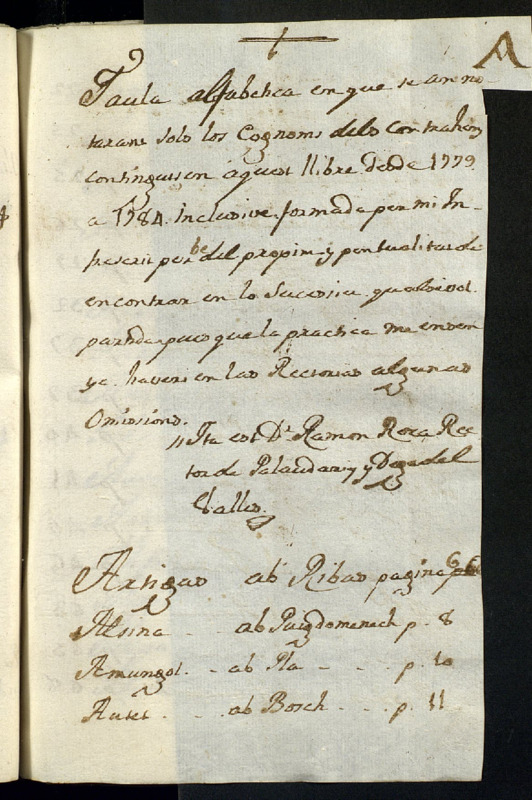 A
Taula alfabetica en que se anno
taran solo los Cognoms dels contrahens
continguts en aquest llibre desde 1779
a 1784 inclusive formada per mi In-
frascrit per be del proxim y pontualitat de
encontrar en lo sucesiu qualsevol
partida puos que la practica me enseny
ya haveri en las Rectorias algunas
Omisions.
Ita est Dr. Ramon Roca Rec-
tor de Palaudarias y Dega del
Valles.
Artigas ab Ribas pagina 6
Alsina . . ab Puigdomenech p. 8
Amungol. . . ab Pla - - - p. 10
Autet . . . ab Bosch . . . p. 11